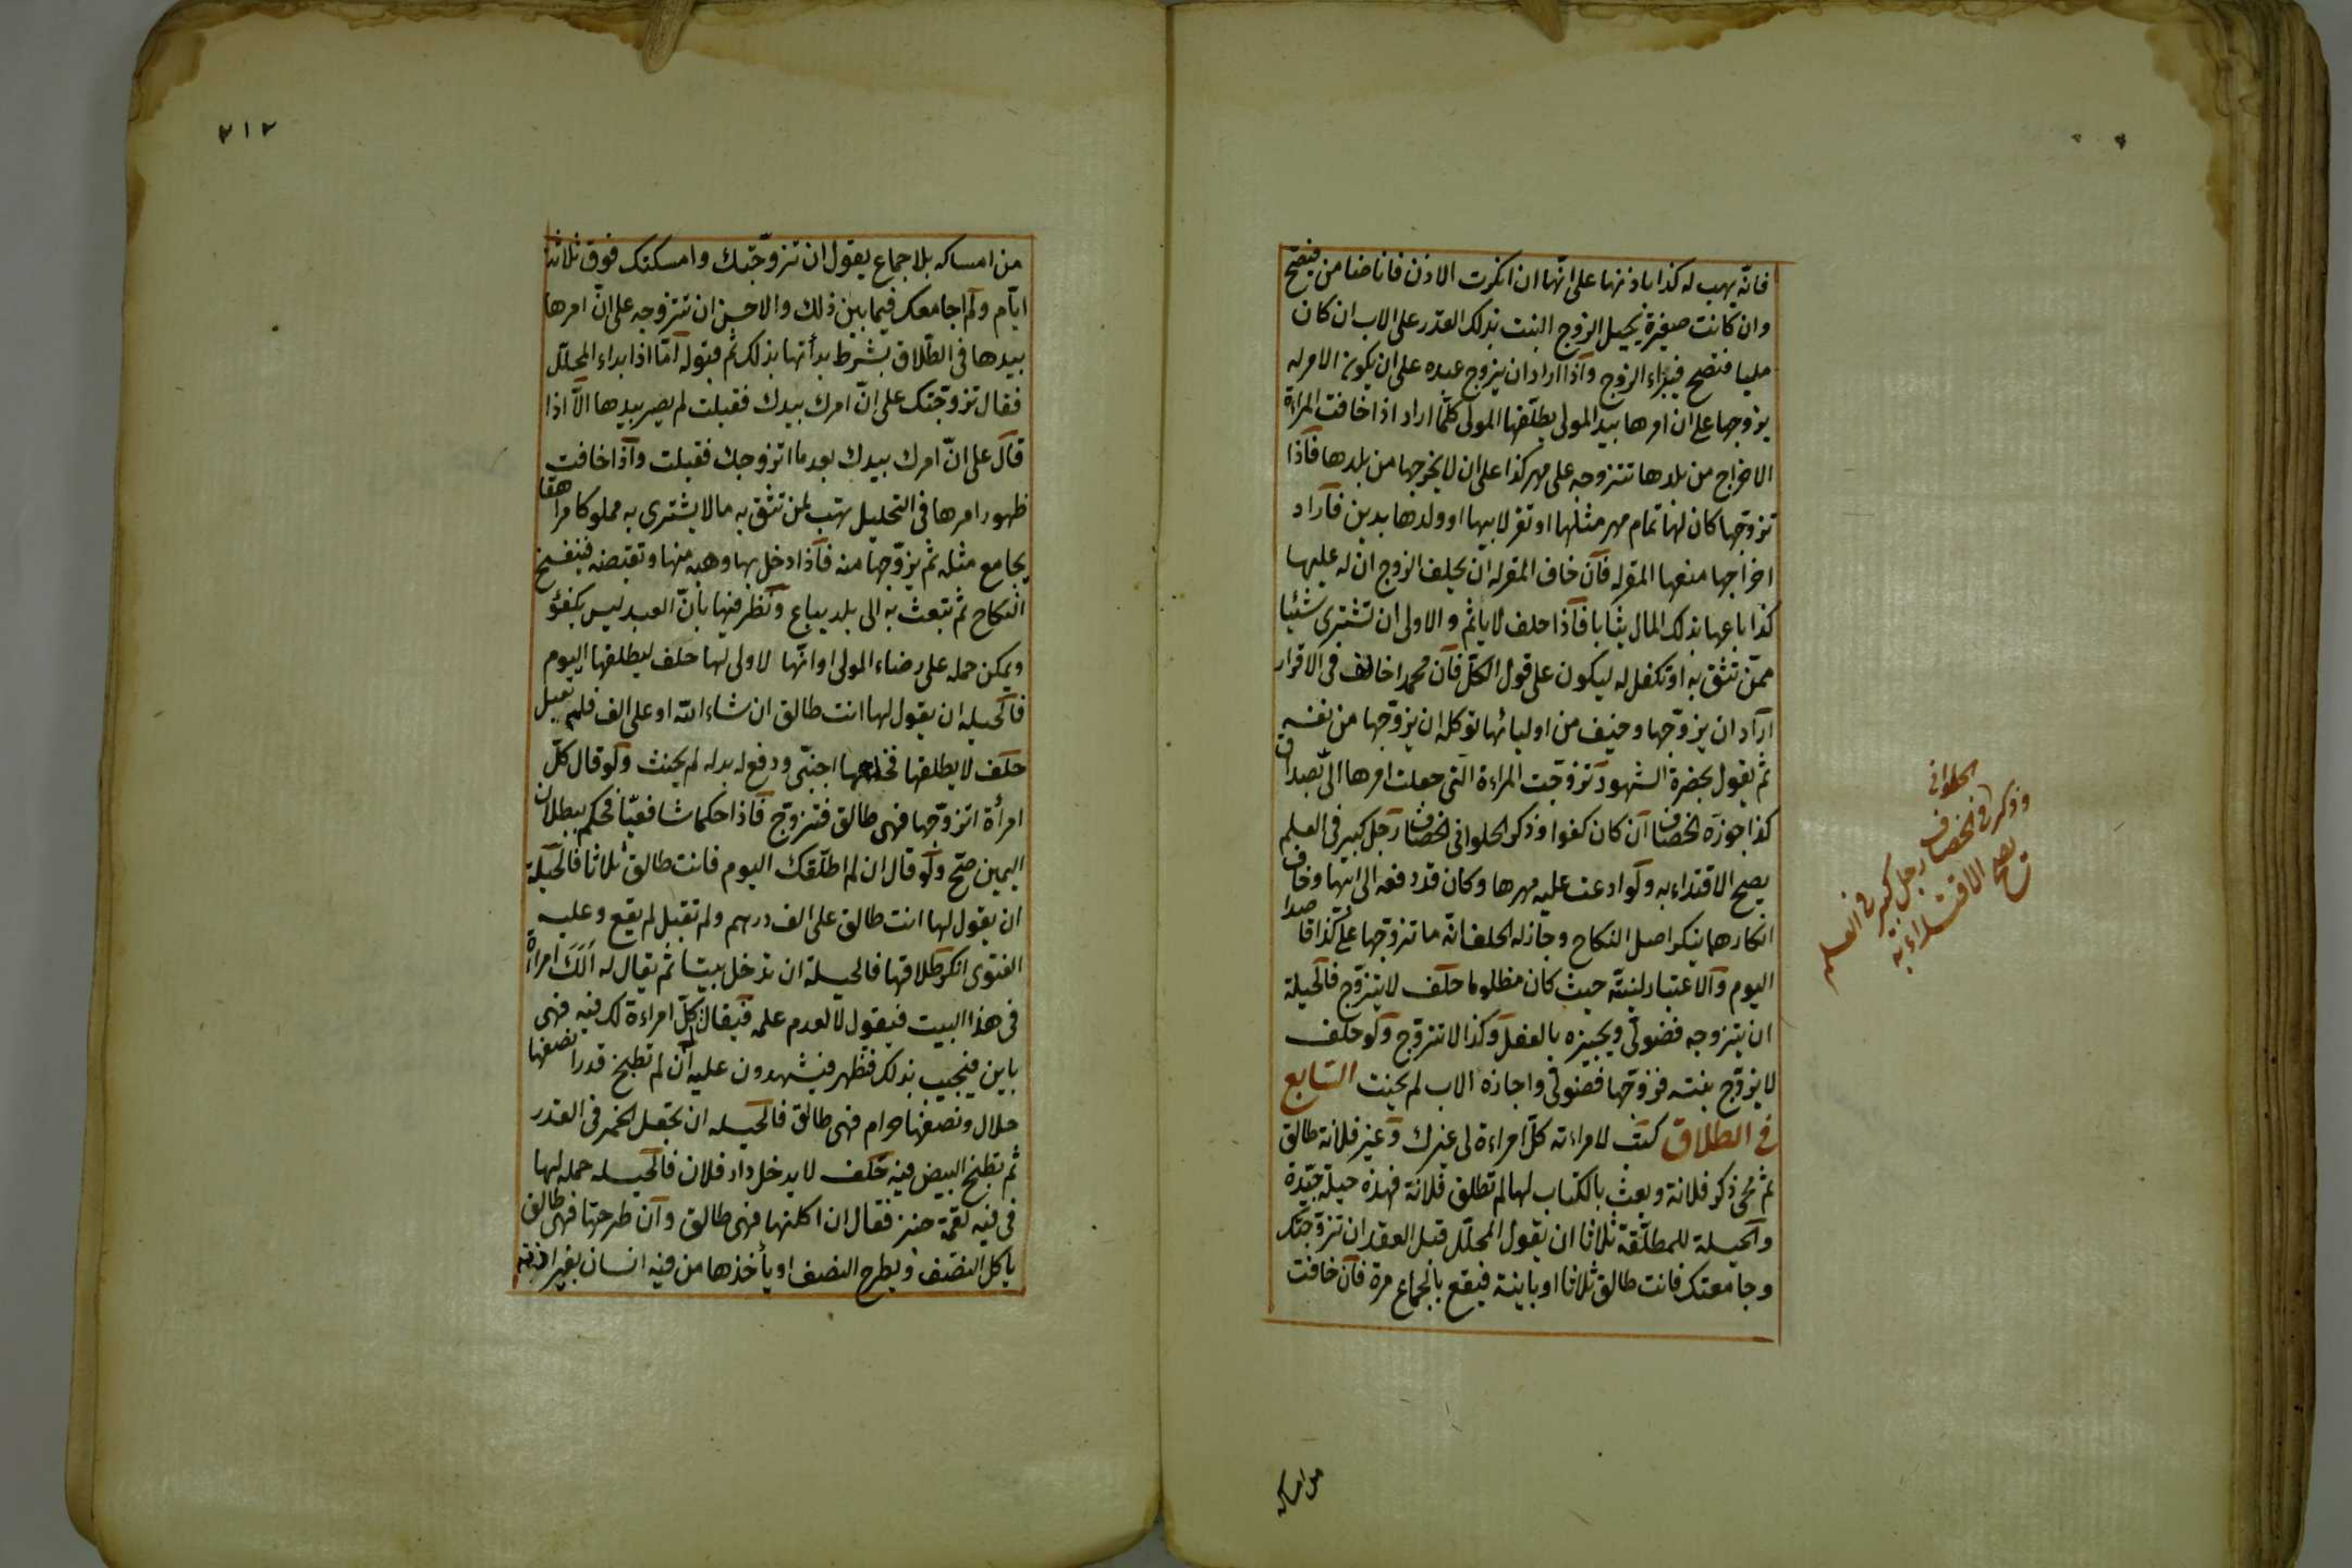 فانّه يهب له كذا باذنها على انّها ان انكرت الاذن فانا ضامن فيصحّ
وان كانت صغيرة يحيل الزوج البنت بذلك القدر على الاب ان كان
مليا فتصح فيبراء الزوج واذا اراد ان يزوج عبده على ان يكون الامر له
يزوجها على ان امرها بيد المولى يطلّقها المولى كلّما اراد اذا خافت المراءة
الاخراج من بلدها تتزوجه على مهر كذا على ان لا يخرجها من بلدها فاذا
تزوّجها كان لها تمام مهر مثلها او تقر لابيها او ولدها بدين فاراد
اخراجها منعها المقر له فان خاف المقر له ان يحلف الزوج ان له عليها
كذا باعها بذلك المال ثيابا فاذا حلف لا ياثم والاولى ان تشترى شئيا
ممّن تثق به او تكفل له ليكون على قول الكلّ فان محمدا خالف فى الاقرار
اراد ان يزوّجها وخيف من اوليائها توكله ان يزوّجها من نفسه
ثم يقول بحضرة الشهود تزوجت المراءة التى جعلت امرها الىّ بصداق
كذا جوزه الخصاف ان كان كفوا وذكر الحلوانى الخصاف رجل كبير فى العلم
يصح الاقتداء به ولو ادعت عليه مهرها وكان قد دفعه الى ابيها وخاف
انكارهما ينكر اصل النكاح وجاز له الحلف انّه ما تزوّجها على كذا قاصدا
اليوم والاعتبار لنيته حيث كان مظلوما حلف لا يتزوّج فالحيلة
ان يتزوجه فضولى ويجيزه بالفعل وكذا لا تتزوّج ولو حلف
لا يزوّج بنته فزوّجها فضولى واجازه الاب لم يحنث السابع
فى الطلاق كتب لامراءته كلّ امراءة لى غيرك وغير فلانة طالق
ثم محى ذكر فلانة وبعث بالكتاب لها لم تطلق فلانة فهذه حيلة جيّدة
والحيلة للمطلّقة ثلاثا ان يقول المحلّل قبل العقد ان تزوّجتك
وجامعتك فانت طالق ثلاثا او باينة فيقع بالجماع مرة فان خافت
وذكر الحلوانى
فى الخصاف رجل كبير فى العلم
يصح الاقتداء به
من امساكه
٣١٢
من امساكه بلا جماع يقول ان تزوّجتك وامسكتك فوق ثلاثة
ايّام ولم اجامعك فيما بين ذلك والاحسن ان تتزوجه على انّ امرها
بيدها فى الطّلاق بشرط بدأتها بذلك ثم قبوله امّا اذا بداء المحلّل
فقال تزوّجتك على انّ امرك بيدك فقبلت لم يصر بيدها الاّ اذا
قال على انّ امرك بيدك بعد ما اتزوجك فقبلت واذا خافت
ظهور امرها فى التحليل تهب لمن تثق به مالا يشترى به مملوكا مراهقا
يجامع مثله ثم يزوّجها منه فاذا دخل بها وهبه منها وتقبضه فينفسخ
النكاح ثم تبعث به الى بلد يباع ونظر فيها بانّ العبد ليس بكفؤ
ويمكن حمله على رضاء المولى او انّها لا ولى لها حلف ليطلقها اليوم
فالحيله ان يقول لها انت طالق ان شاء الله او على الف فلم تقبل
حلف لا يطلقها فخلعها اجنبى ودفع له بدله لم يحنث ولو قال كلّ
امرأة اتزوّجها فهى طالق فتزوّج فاذا حكما شافعيّا فحكم ببطلان
اليمين صحّ ولو قال ان لم اطلّقك اليوم فانت طالق ثلاثا فالحيلة
ان يقول لها انت طالق على الف درهم ولم تقبل لم يقع وعليه
الفتوى انكر طلاقها فالحيلة ان تدخل بيتا ثم يقال له الك امراة
فى هذا البيت فيقول لا لعدم علمه فيقال كلّ امراءة لك فيه فهى
باين فيجيب بذلك فتظهر فيشهدون عليه ان لم تطبخ قدرا نصفها
حلال ونصفها حرام فهى طالق فالحيله ان تجعل الخمر فى القدر
ثم تطبخ البيض فيه حلف لا يدخل دار فلان فالحيله حمله لها
فى فيه لقمة خبز فقال ان اكلتها فهى طالق وان طرحتها فهى طالق
ياكل النصف ويطرح النصف او يأخذها من فيه انسان بغير اذنه